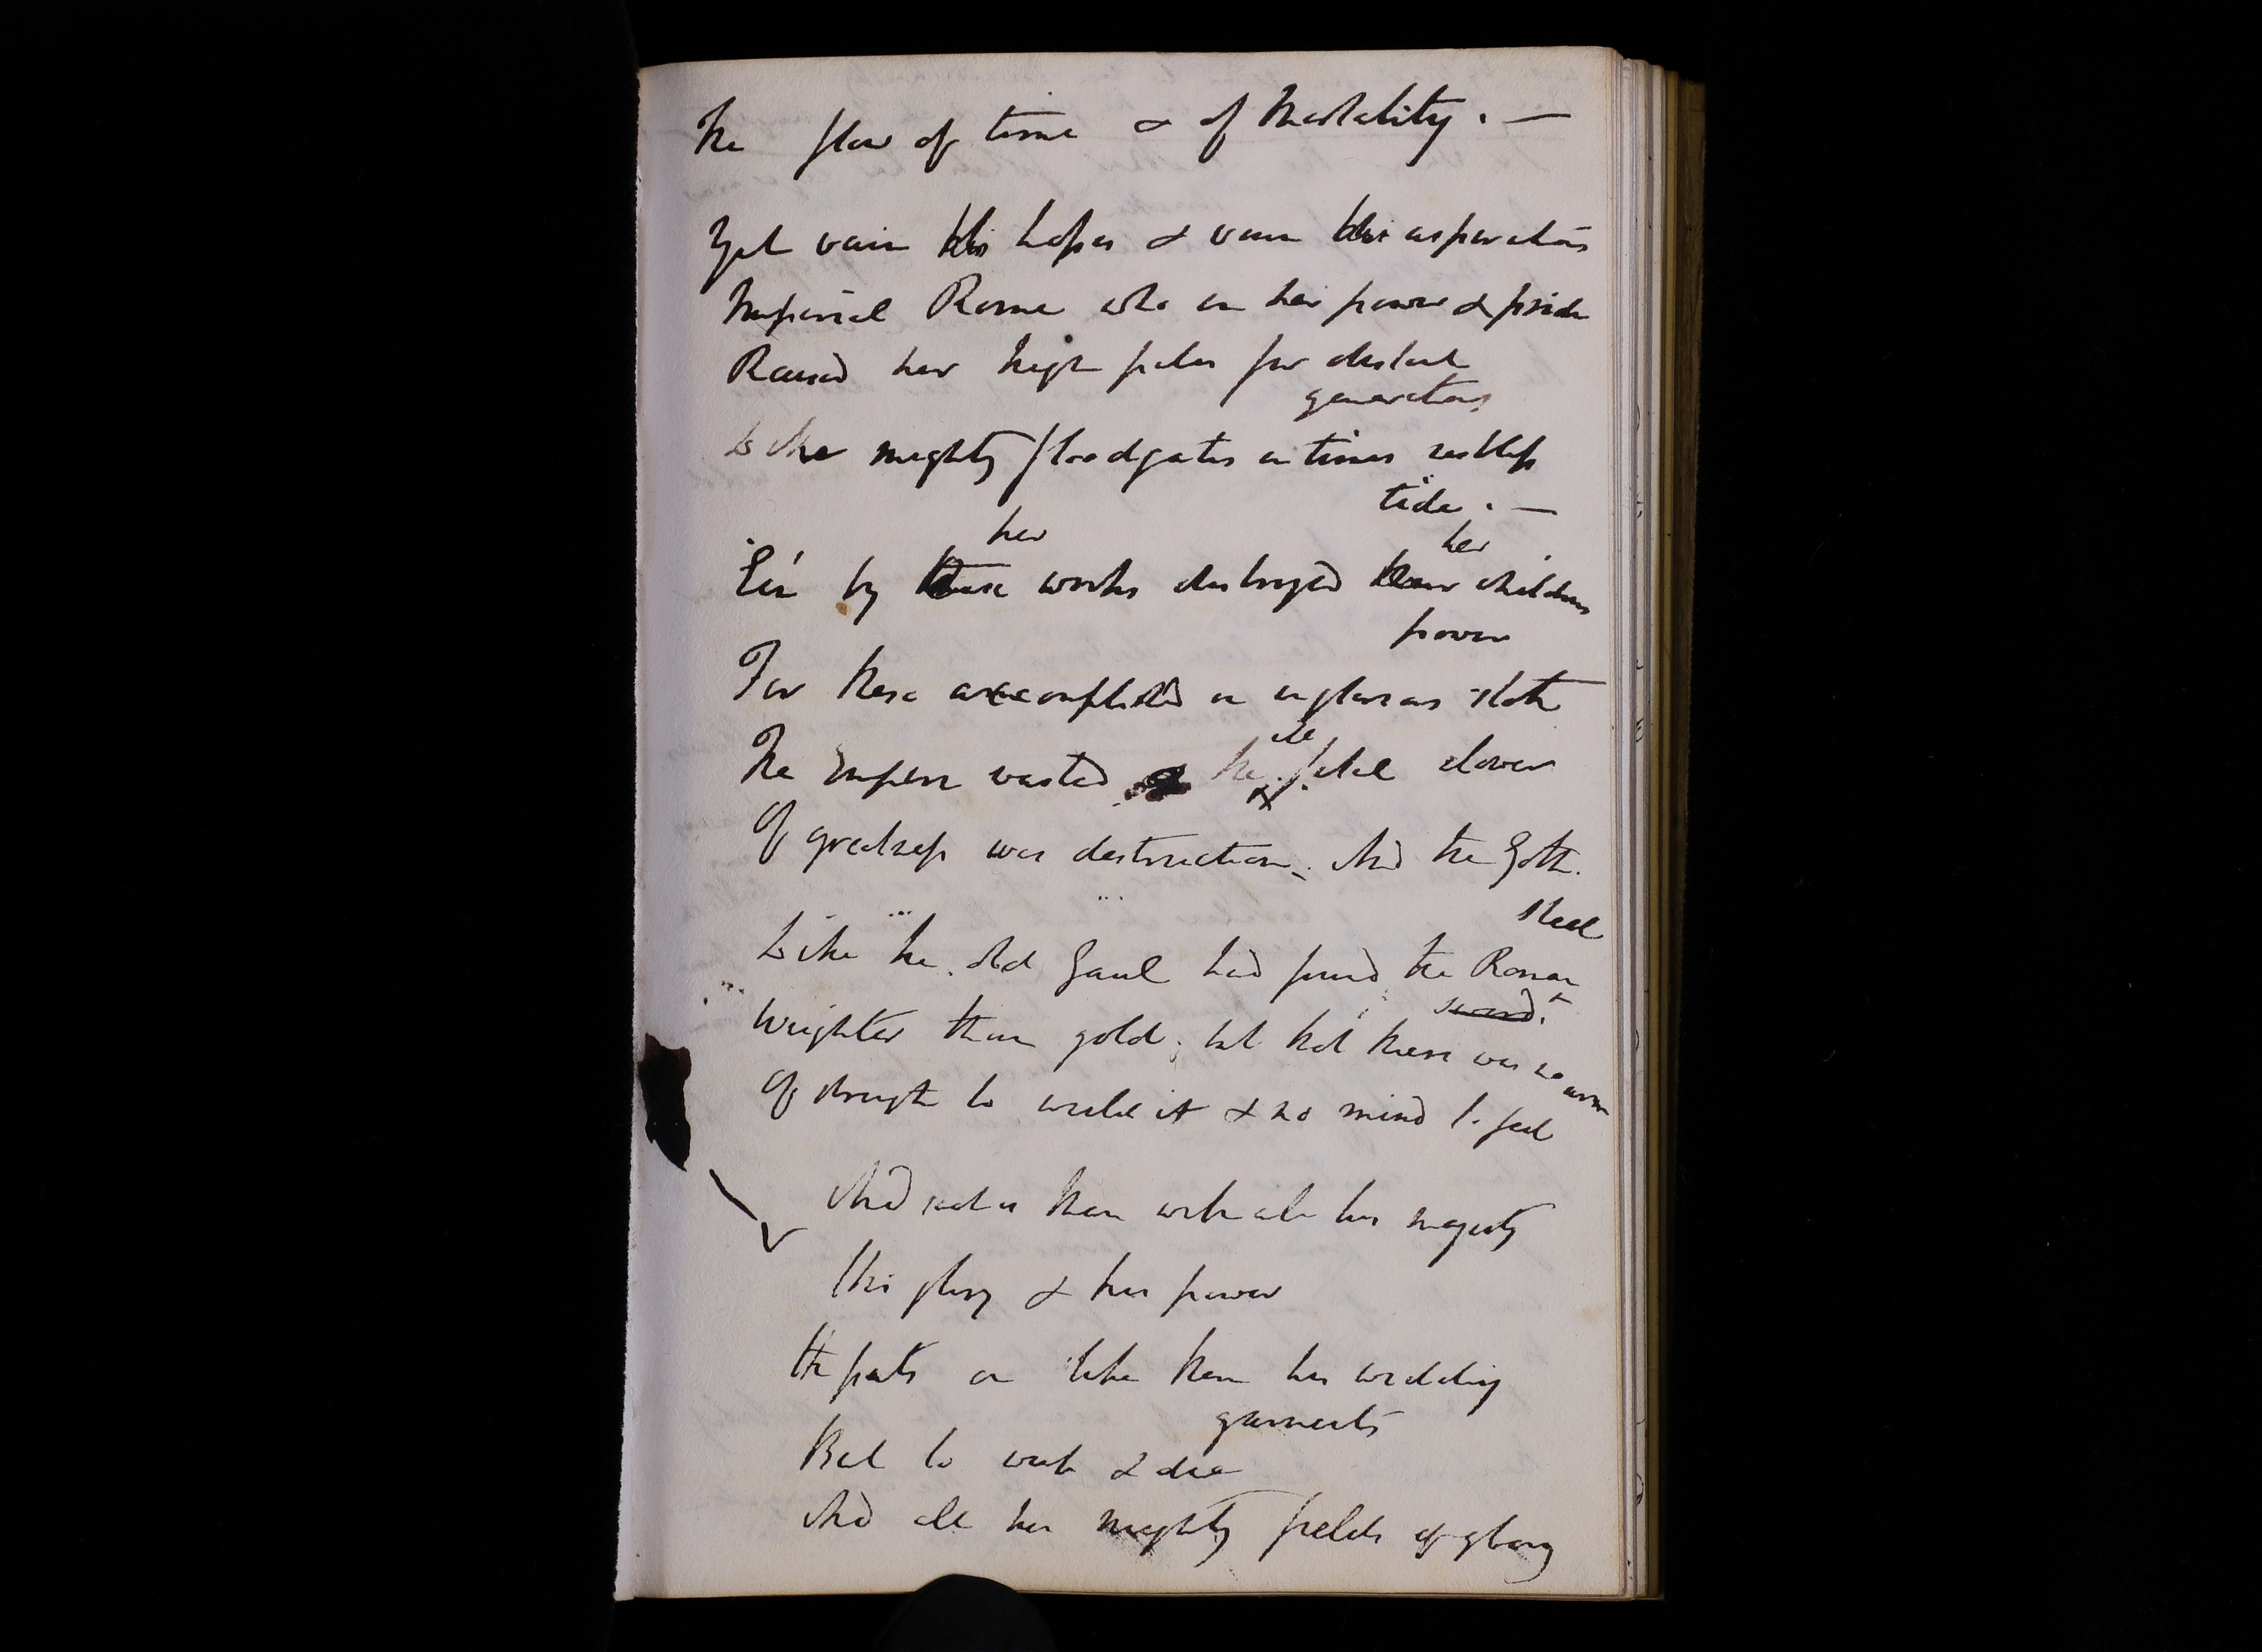 The flow of time & of Mortality. —
Yet vain this hopes & vain this aspirations
Imperial Rome who in her power & pride
Raised her high piles for distant
generations
Like mighty floodgates in times restless
tide. —
her her
E'en by these works destroyed their childrens
power
For these accomplished in inglorious sloth
The Empire wasted & the fatal dower
all
Of greatness was destruction. And the Goth.
steel
Like the old Gaul had found the Roman
sword.
Weightier than gold; but that there was no arm
Of strength to wield it & no mind to feel
And what is Man with all his majesty
His glory & his power
He puts on like them his wedding
garments
But to wed & die
And all his mighty fields of glory